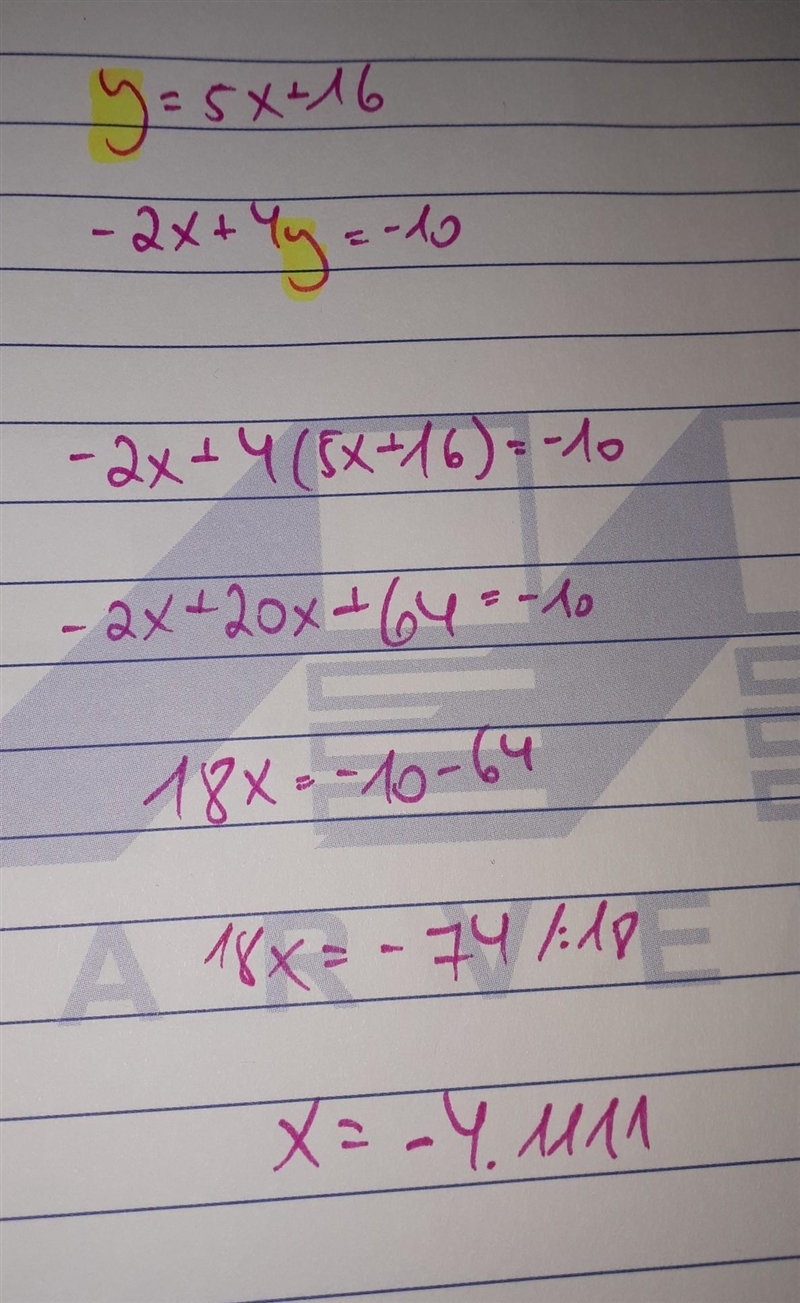 y = 5x + 16
-2x + 4y = -10
-2x + 4(5x + 16) = -10
-2x + 20x + 64 = -10
18x = -10 - 64
18x = -74 /:18
ARVE
x = -4.1111